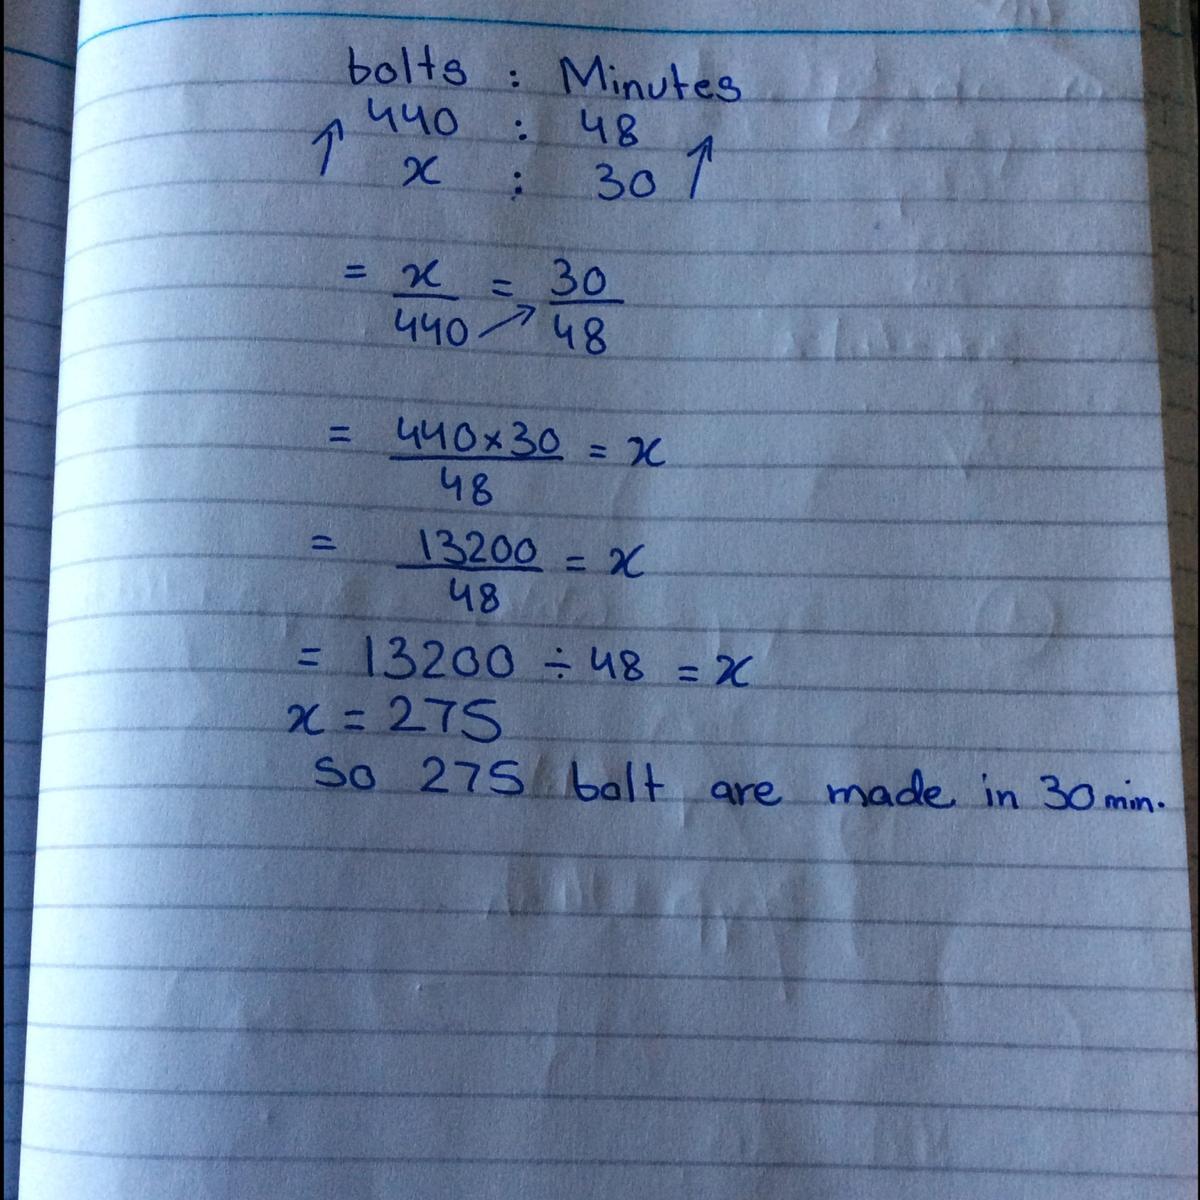 bolts : Minutes
↑ 440 : 48 ↑
x : 30
= x/440 = 30/48
= 440×30/48 = x
= 13200/48 = x
= 13200 ÷ 48 = x
x = 275
So 275 bolt are made in 30 min.